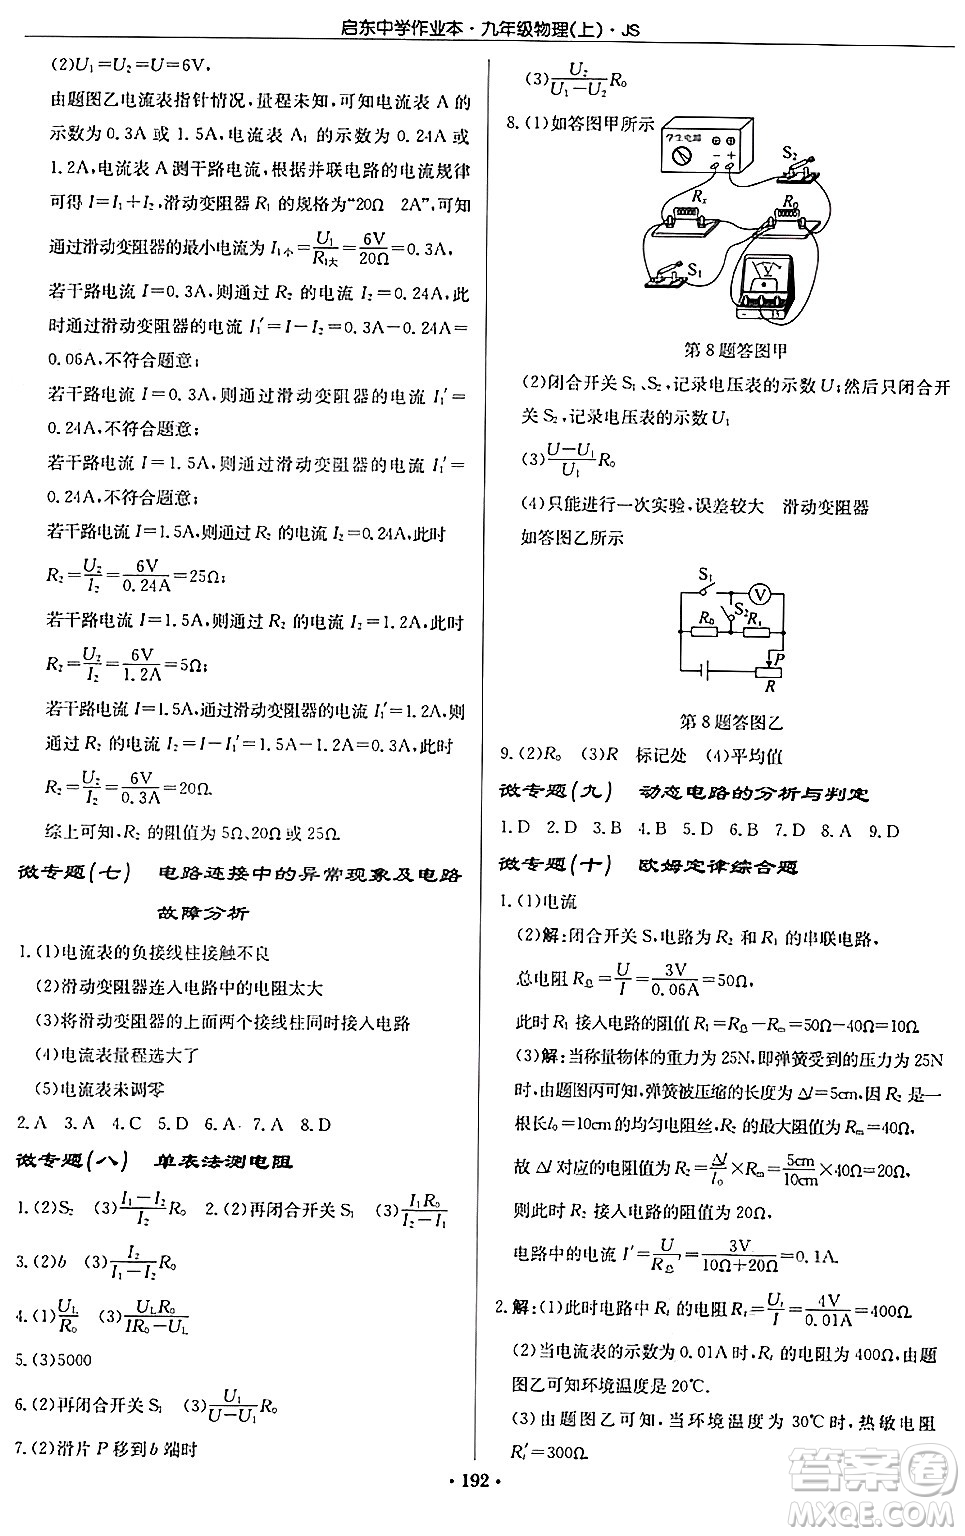 启东中学作业本·九年级物理(上)·JS
(2)U₁=U₂=U=6V
由题图乙电流表指针情况,量程未知,可知电流表 A 的
示数为 0.3A 或 1.5A,电流表 A₁ 的示数为 0.24A 或
1.2A,电流表 A 测干路电流,根据并联电路的电流规律
可得 I=I₁+I₂,滑动变阻器 R₁ 的规格为“20Ω 2A”,可知
通过滑动变阻器的最小电流为 I₁小=U₁/R₁大=6V/20Ω=0.3A,
若干路电流 I=0.3A,则通过 R₂ 的电流 I₂=0.24A,此
时通过滑动变阻器的电流 I₁′=I-I₂=0.3A-0.24A=
0.06A,不符合题意;
若干路电流 I=0.3A,则通过滑动变阻器的电流 I₁′=
0.24A,不符合题意;
若干路电流 I=1.5A,则通过滑动变阻器的电流 I₁′=
0.24A,不符合题意;
若干路电流 I=1.5A,则通过 R₂ 的电流 I₂=0.24A,此时
R₂=U₂/I₂=6V/0.24A=25Ω;
若干路电流 I=1.5A,则通过 R₂ 的电流 I₂=1.2A,此时
R₂=U₂/I₂=6V/1.2A=5Ω;
若干路电流 I=1.5A,通过滑动变阻器的电流 I₁′=1.2A,则
通过 R₂ 的电流 I₂=I-I₁′=1.5A-1.2A=0.3A,此时
R₂=U₂/I₂=6V/0.3A=20Ω.
综上可知,R₂ 的阻值为 5Ω、20Ω 或 25Ω.
微专题(七) 电路连接中的异常现象及电路
故障分析
1.(1)电流表的负接线柱接触不良
(2)滑动变阻器连入电路中的电阻太大
(3)将滑动变阻器的上面两个接线柱同时接入电路
(4)电流表量程选大了
(5)电流表未调零
2.A 3.A 4.C 5.D 6.A 7.A 8.D
微专题(八) 单表法测电阻
1.(2)S₂ (3)(I₁-I₂)/I₂ R₀ 2.(2)再闭合开关 S₁ (3)I₁R₀/(I₂-I₁)
3.(2)b (3)I₂/(I₁-I₂) R₀
4.(1)U_L/R₀ (2)U_LR₀/(IR₀-U_L)
5.(3)5000
6.(2)再闭合开关 S₁ (3)U₁/(U-U₁) R₀
7.(2)滑片 P 移到 b 端时
(3)U₂/(U₁-U₂) R₀
8.(1)如答图甲所示
学生电源
S₂
Rₓ
R₀
S₁
V
第 8 题答图甲
(2)闭合开关 S₁、S₂,记录电压表的示数 U;然后只闭合开
关 S₂,记录电压表的示数 U₁
(3)(U-U₁)/U₁ R₀
(4)只能进行一次实验,误差较大 滑动变阻器
如答图乙所示
S₁
V
S₂
R₀
R₁
P
R
第 8 题答图乙
9.(2)R₀ (3)R 标记处 (4)平均值
微专题(九) 动态电路的分析与判定
1.D 2.D 3.B 4.B 5.D 6.B 7.D 8.A 9.D
微专题(十) 欧姆定律综合题
1.(1)电流
(2)解:闭合开关 S,电路为 R₂ 和 R₁ 的串联电路,
总电阻 R总=U/I=3V/0.06A=50Ω,
此时 R₁ 接入电路的阻值 R₁=R总-Rm=50Ω-40Ω=10Ω.
(3)解:当称量物体的重力为 25N,即弹簧受到的压力为 25N
时,由题图丙可知,弹簧被压缩的长度为 Δl=5cm,因 R₂ 是一
根长 l₀=10cm 的均匀电阻丝,R₂ 最大阻值为 Rm=40Ω,
故 Δl 对应的电阻 R=Δl/l₀×Rm=5cm/10cm×40Ω=20Ω,
则此时 R₂ 接入电路的阻值为 20Ω,
电路中的电流 I′=U/R总′=3V/(10Ω+20Ω)=0.1A.
2.解:(1)此时电路中 Rt 的电阻 Rt=Ut/I=4V/0.01A=400Ω.
(2)当电流表的示数为 0.01A时,Rt 的电阻为 400Ω,由题
图乙可知环境温度是 20℃.
(3)由题图乙可知,当环境温度为 30℃时,热敏电阻
Rt′=300Ω.
·192·
答案圈
MXQE.COM